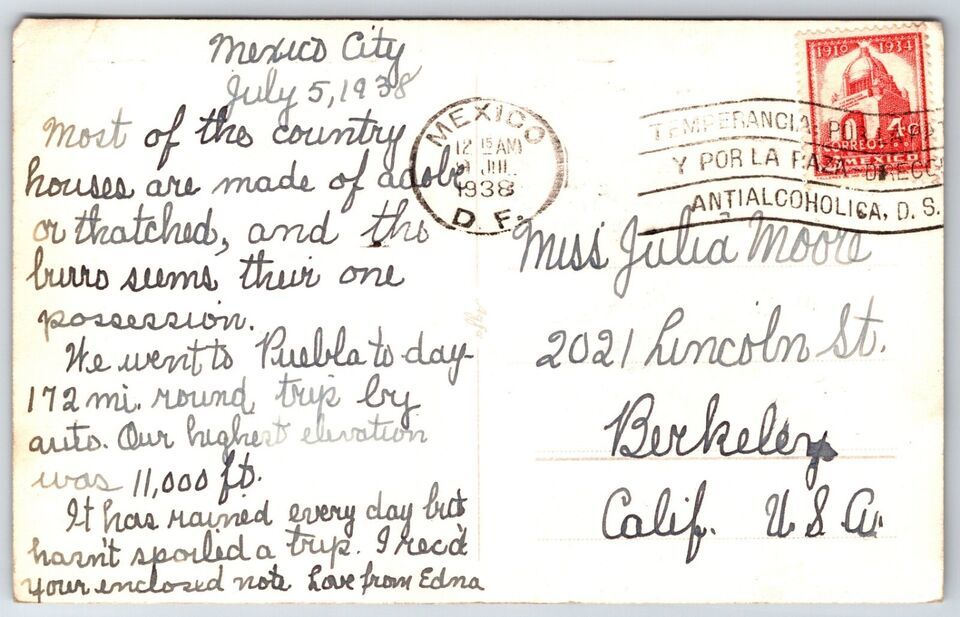 Mexico City
July 5, 1938
Most of the country
houses are made of adobe
or thatched, and the
burro seems their one
possession.
We went to Puebla to day-
172 mi. round trip by
auto. Our highest elevation
was 11,000 ft.
It has rained every day but
hasn't spoiled a trip. I rec'd
your enclosed note Love from Edna
MEXICO
12 15 AM
JUL
1938
D. F.
TEMPERANCIA POR LA
Y POR LA RAZA DIRECC
ANTIALCOHOLICA, D. S.
1910 1934
4c
CORREOS
MEXICO
Miss Julia Moore
2021 Lincoln St.
Berkeley
Calif. U. S. A.